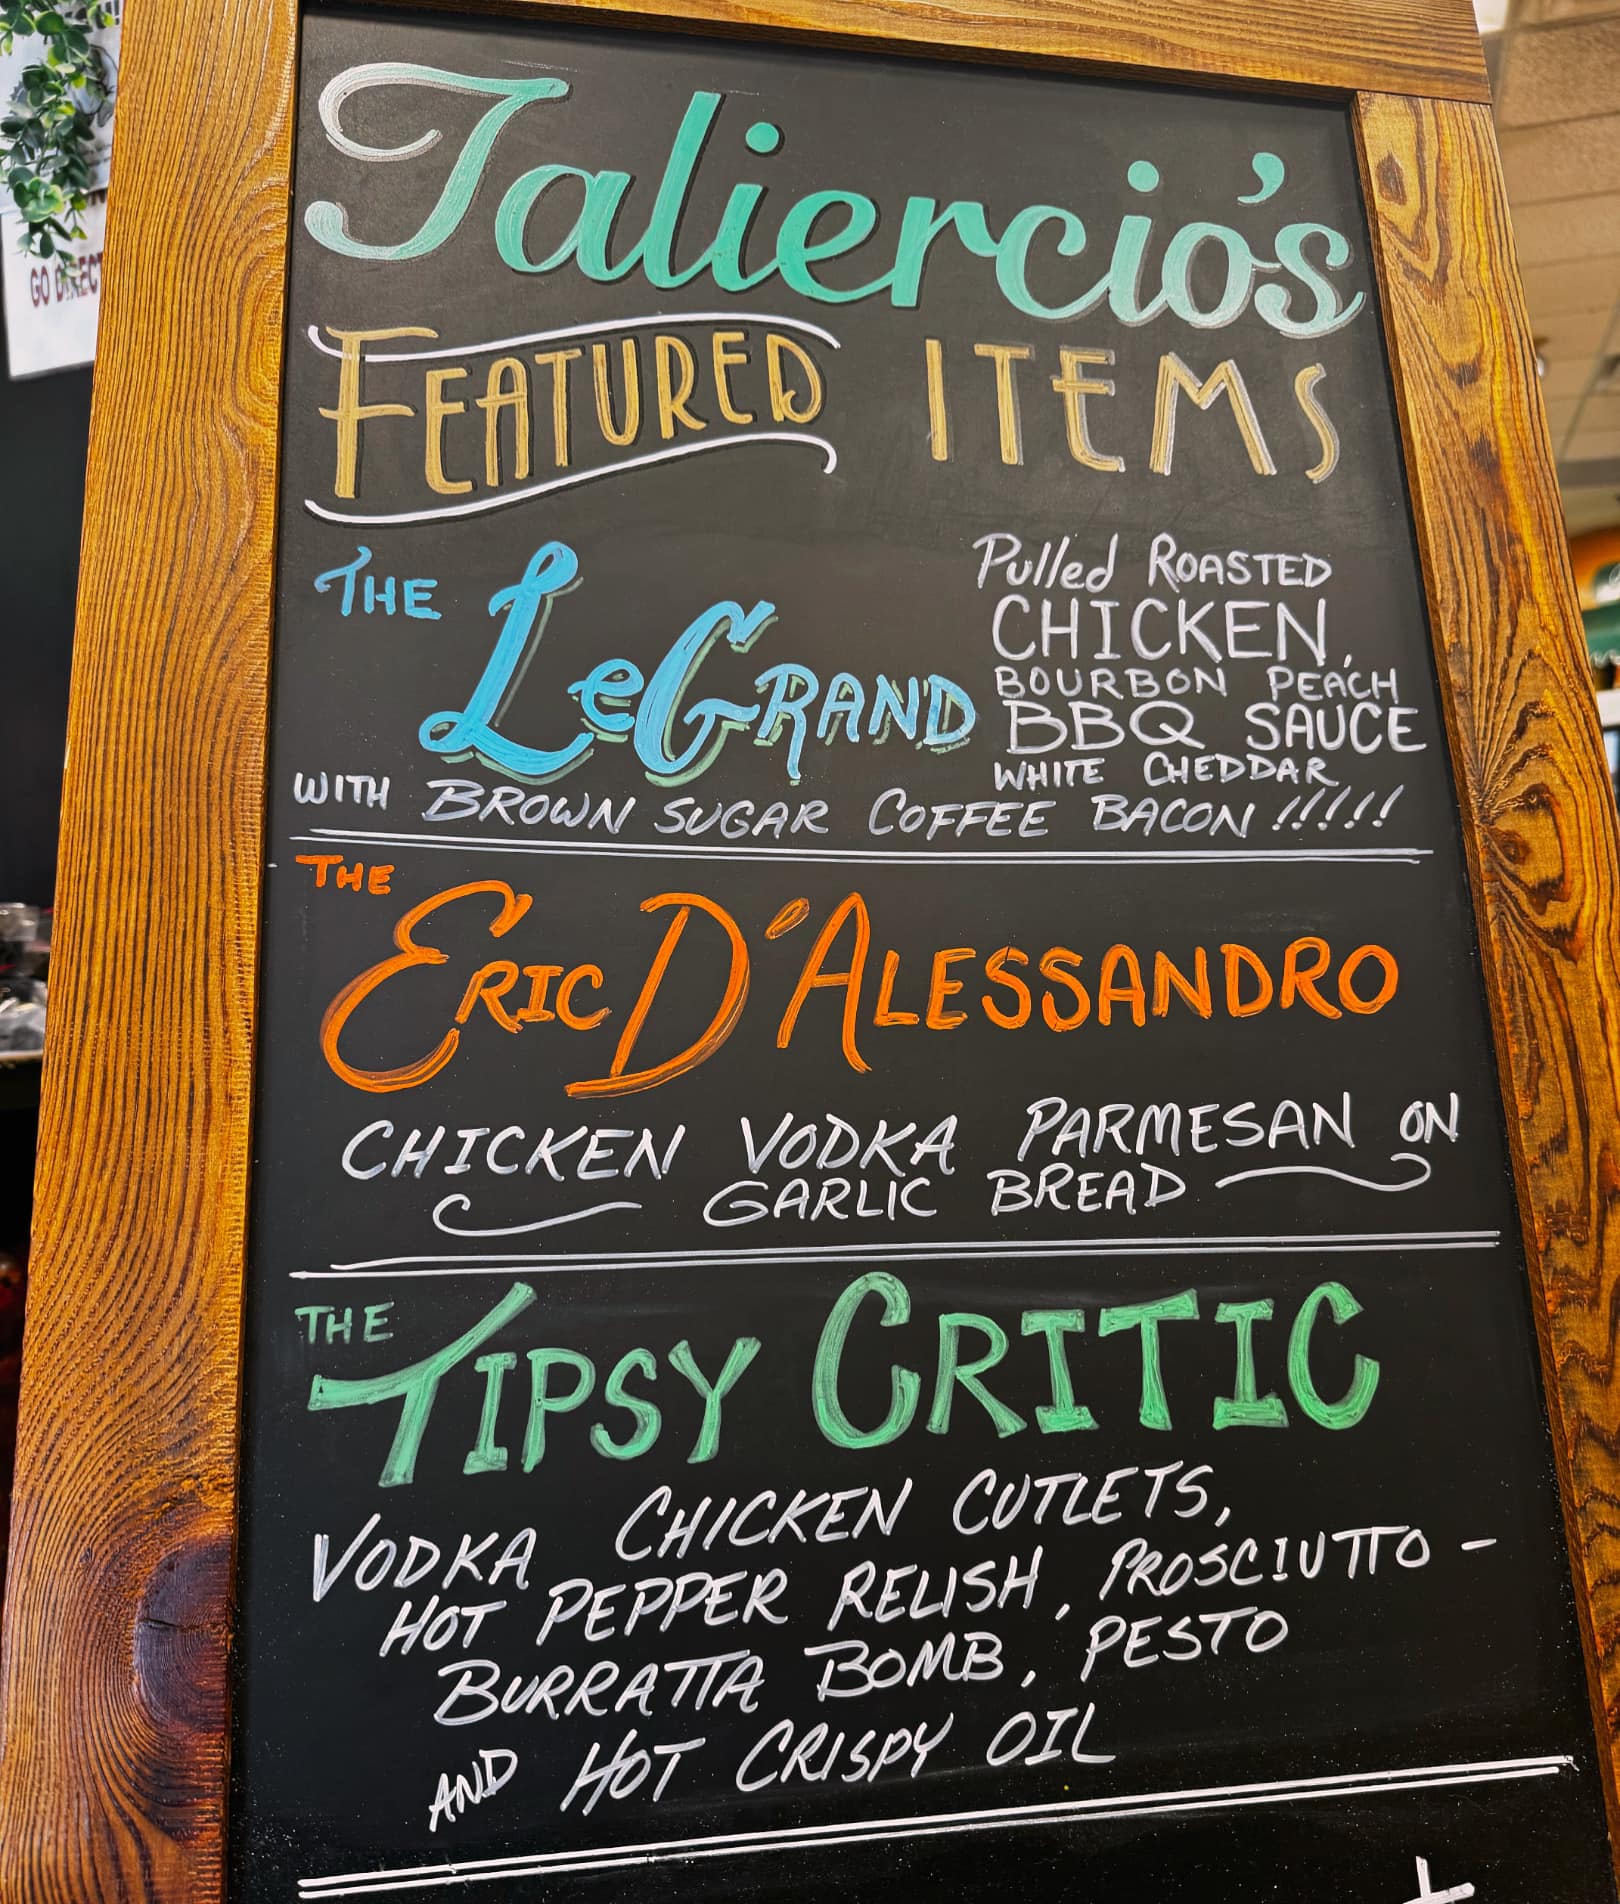 GO DIRECT
Taliercio's
FEATURED ITEMS
THE LeGRAND
Pulled ROASTED
CHICKEN,
BOURBON PEACH
BBQ SAUCE
WHITE CHEDDAR
WITH BROWN SUGAR COFFEE BACON !!!!!
THE
ERIC D'ALESSANDRO
CHICKEN VODKA PARMESAN ON
GARLIC BREAD
THE TIPSY CRITIC
VODKA CHICKEN CUTLETS,
HOT PEPPER RELISH, PROSCIUTTO -
BURRATTA BOMB, PESTO
AND HOT CRISPY OIL